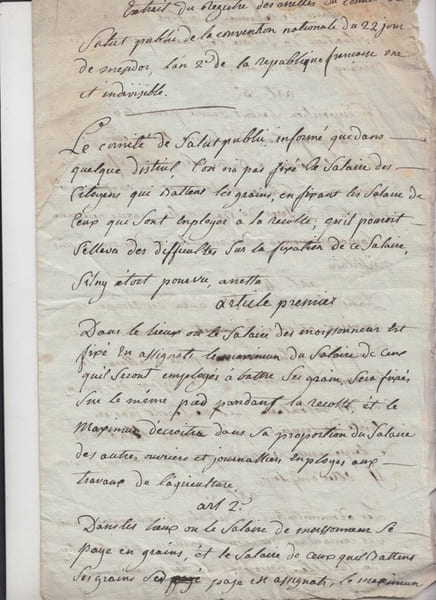 Extrait du Registre des arettes du comité de
Salut public de la convention nationale du 22 jour
de messidor, lan 2e de la republique francaise une
et indivisible.
Le comité de Salut public informé que dans
quelque district, l'on na pas fixé le Salaire des
Citoyens qui Battent les grains, en fixant les Salaire de
Ceux que Sont employer a la recolte, quil pouroit
Selleva des difficultes Sur la fixation de ce Salaire,
Silny étoit pourvu, arrette
article premier
Dans le lieux ou le Salaire des moissonneur est
fixé En assignats le maximum du Salaire de ceux
quil Seront employés à battre Ses grain, Sera fixés
Sur le même pied pandant la recolte, et le
Maximum décroitra dans Sa proportion du Salaire
des autres ouvriers et journalliers Employes aux
travaux de lagriculture.
art 2e
Dans les lieux ou le Salaire de moissonneur Se
paye en grains, et le Salaire de Ceux quil Battent
Ses grains Se paye est assignats, le maximum